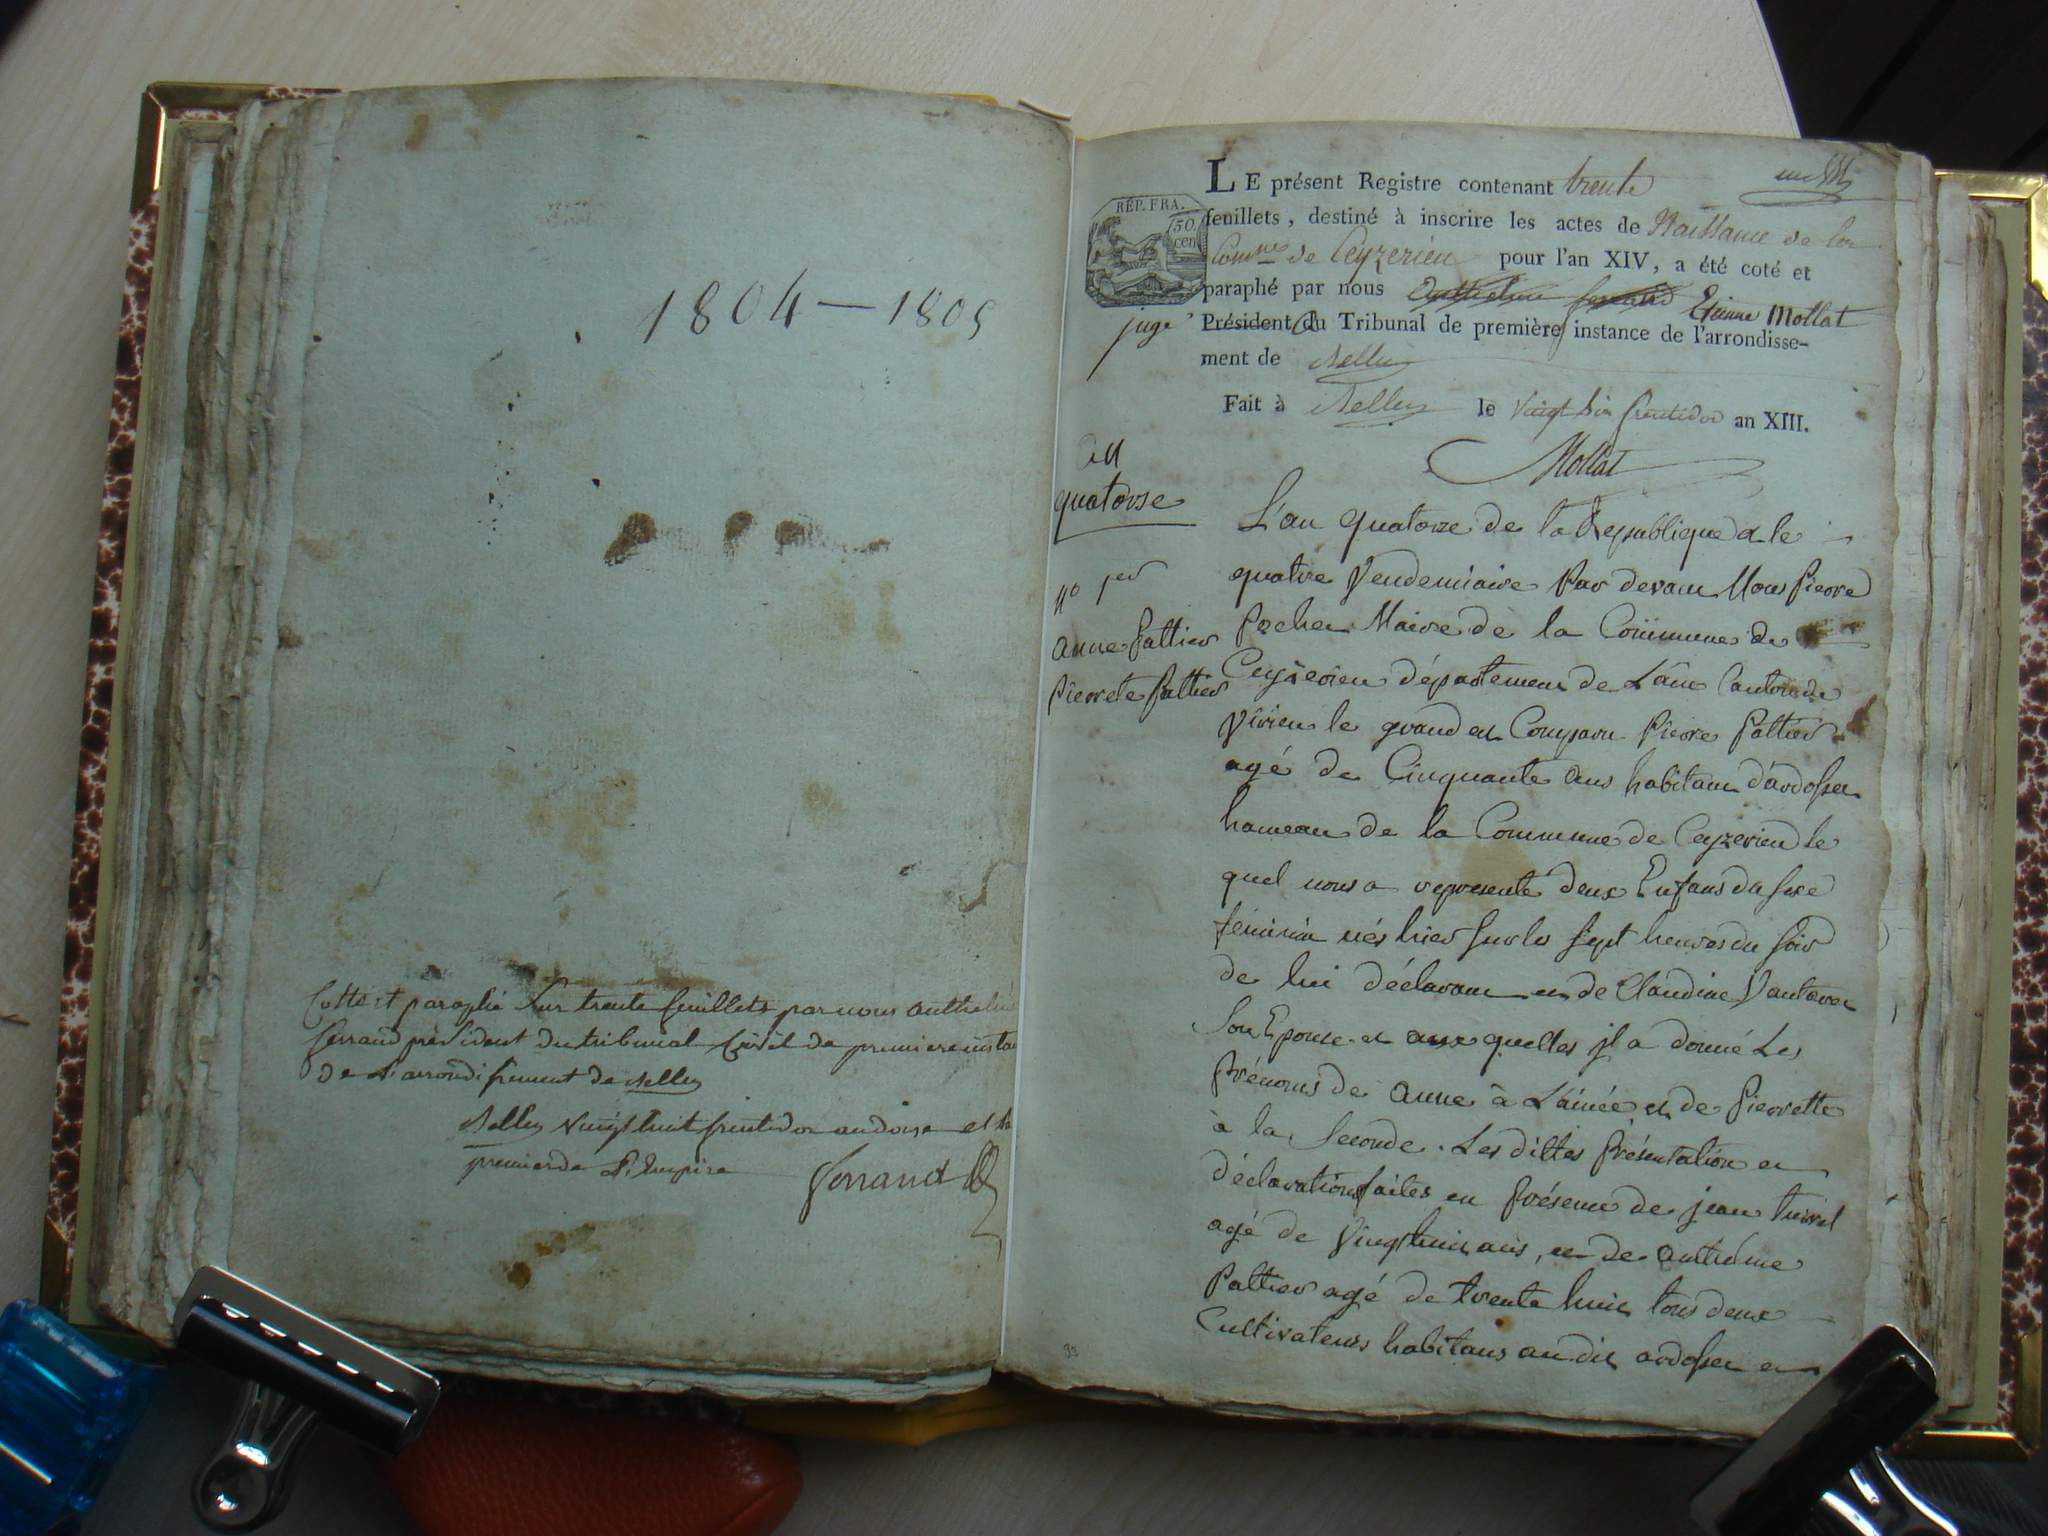 1804 — 1805
Cotté et paraphé sur trente feuillets par nous Anthelme
ferrand président du tribunal Civil de premiere insta
de L'arrondissement de Belley
Belley Vingt huit fructidor an douze et le
premier de L'Empire ferrand
un
LE présent Registre contenant trente
REP. FRA.
50.
cen
feuillets, destiné à inscrire les actes de Naissance de la
Comne de Ceyzerieu pour l'an XIV, a été coté et
paraphé par nous Anthelme ferrand Etienne Mollat
juge Président du Tribunal de première instance de l'arrondisse-
ment de Belley
Fait à Belley le Vingt six fructidor an XIII.
Mollat
an
quatorse
L'an quatorze de la Republique & le
quatre Vendemiaire Par devant Nous Pierre
No 1er
Maire de la Commune de
Anne Pattier
Ceyzerieu département de L'ain Canton de
Pierrete Pattier
Virieu le grand est Comparu Pierre Pattier
agé de Cinquante ans habitant d'ardosset
hameau de la Commune de Ceyzerieu le
quel nous a representé deux Enfans du sexe
féminin nés hier sur les sept heures du soir
de lui déclarant et de Claudine
son Epouse et aux quelles il a donné Les
Prénoms de anne à L'ainée et de Pierrette
à la Seconde. Les dittes Présentation et
déclaration faites en Présence de jean
agé de Vingt huit ans, et de anthelme
Pattier agé de trente huit tous deux
Cultivateurs habitans au dit ardosset et
39